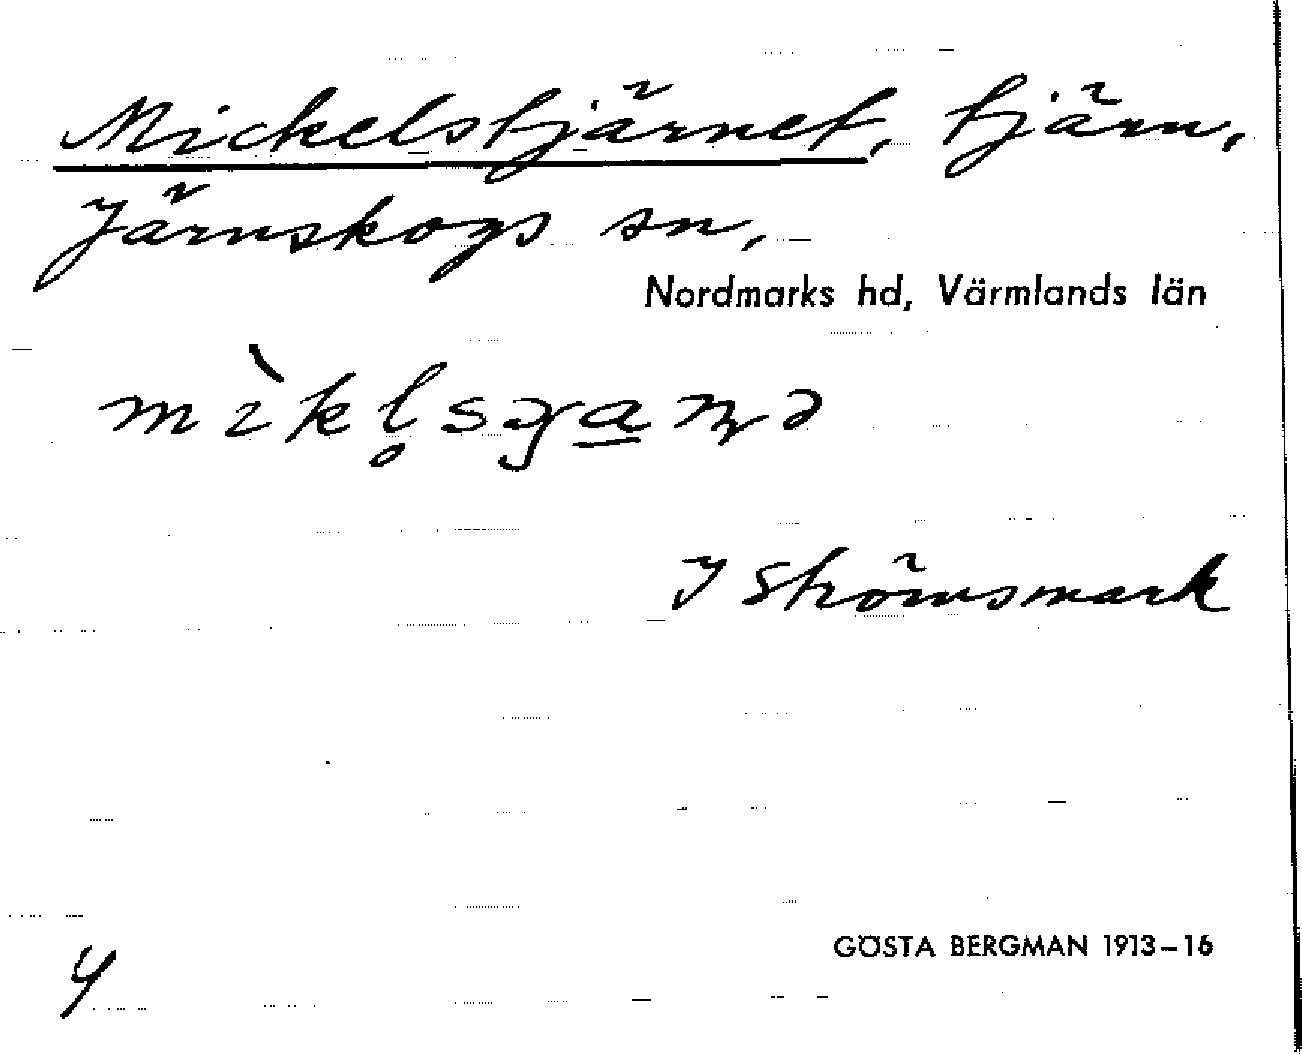 Mickelstjärnet, tjärn,
Järnskogs sn,
Nordmarks hd, Värmlands län
I Strömsmark
GÖSTA BERGMAN 1913-16
4